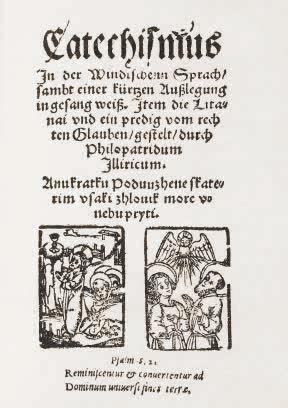 Catechiſmus
In der Windiſchenn Sprach/
ſambt einer kürtzen Außlegung
in geſang weiß. Item die Lita-
nai vnd ein predig vom rech
ten Glauben/geſtelt/durch
Philopatridum
Illiricum.
Anu kratku Poduuzhene ſkate-
rim vſaki zhlouik more vo
nebu pryti.
Pſalm
Reminiſcentur & conuertentur ad
Dominum uniuerſi fines terræ,